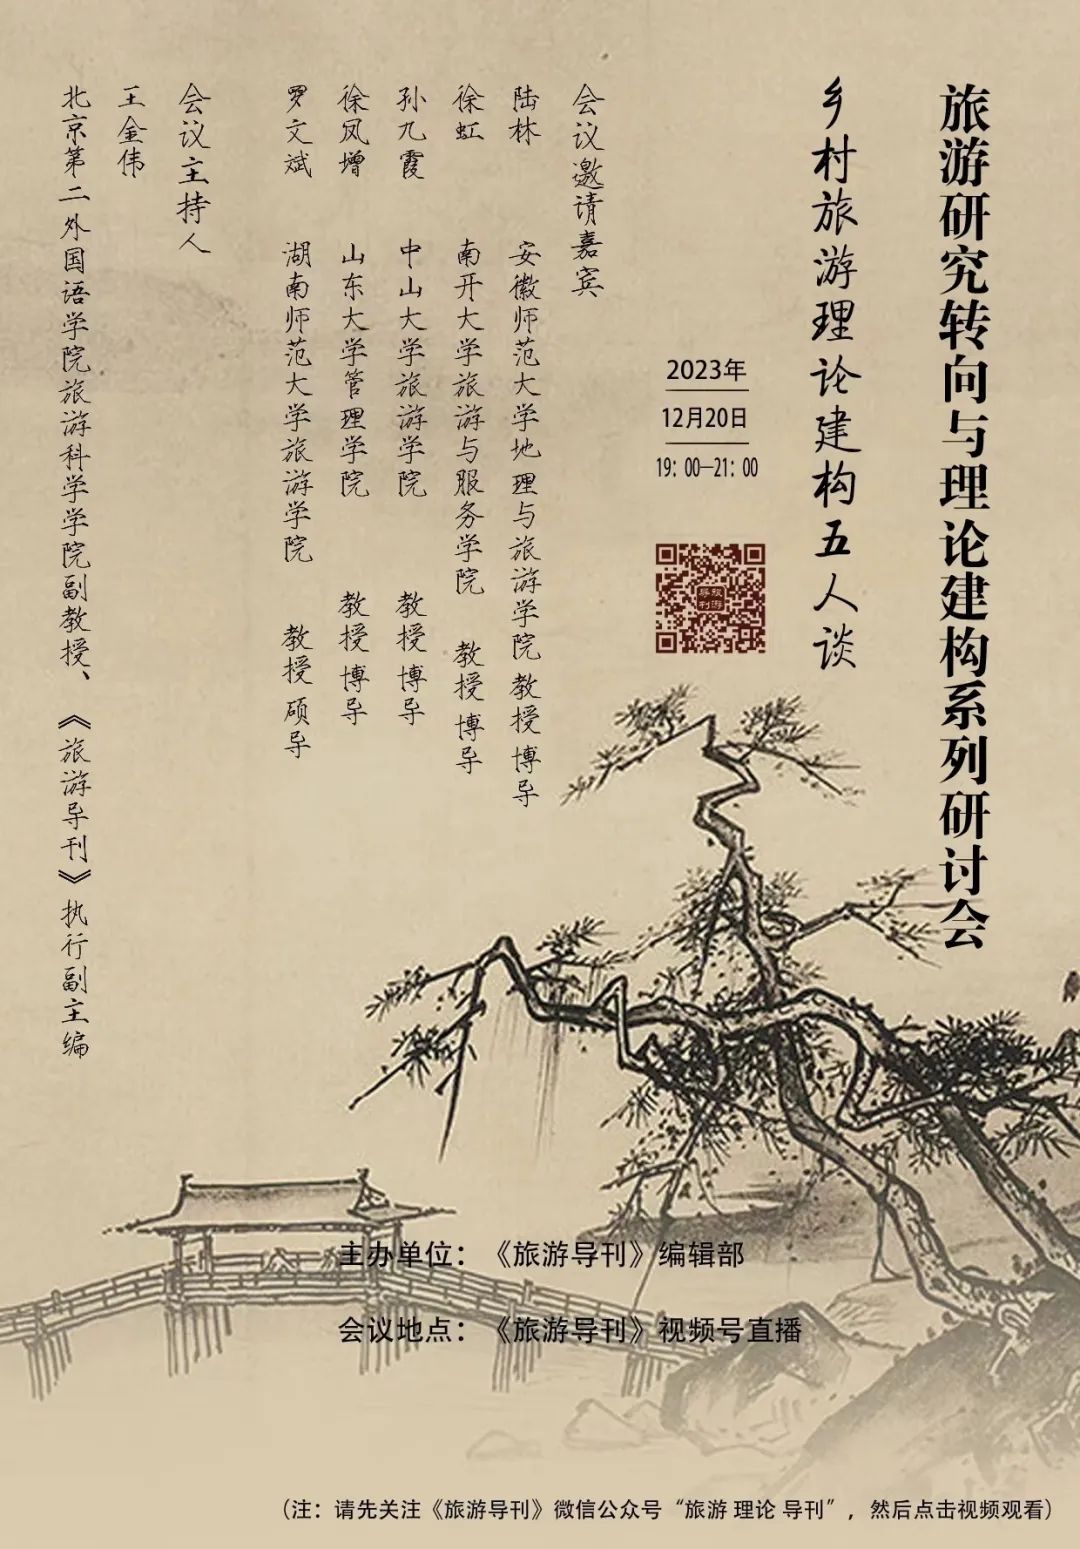 旅游研究转向与理论建构系列研讨会
乡村旅游理论建构五人谈
2023年
12月20日
19：00—21：00
旅游
导刊
会议邀请嘉宾
陆林 安徽师范大学地理与旅游学院 教授 博导
徐虹 南开大学旅游与服务学院 教授 博导
孙九霞 中山大学旅游学院 教授 博导
徐凤增 山东大学管理学院 教授 博导
罗文斌 湖南师范大学旅游学院 教授 硕导
会议主持人
王金伟
北京第二外国语学院旅游科学学院副教授、《旅游导刊》执行副主编
主办单位：《旅游导刊》编辑部
会议地点：《旅游导刊》视频号直播
（注：请先关注《旅游导刊》微信公众号“旅游 理论 导刊”，然后点击视频观看）